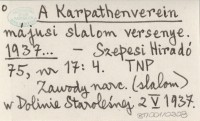 A Karpathenverein
májusi slalom versenye.
1937... – Szepesi Hiradó
75, nr 17: 4. TNP
Zawody narc. (slalom)
w Dolinie Staroleśnej 2 V 1937.